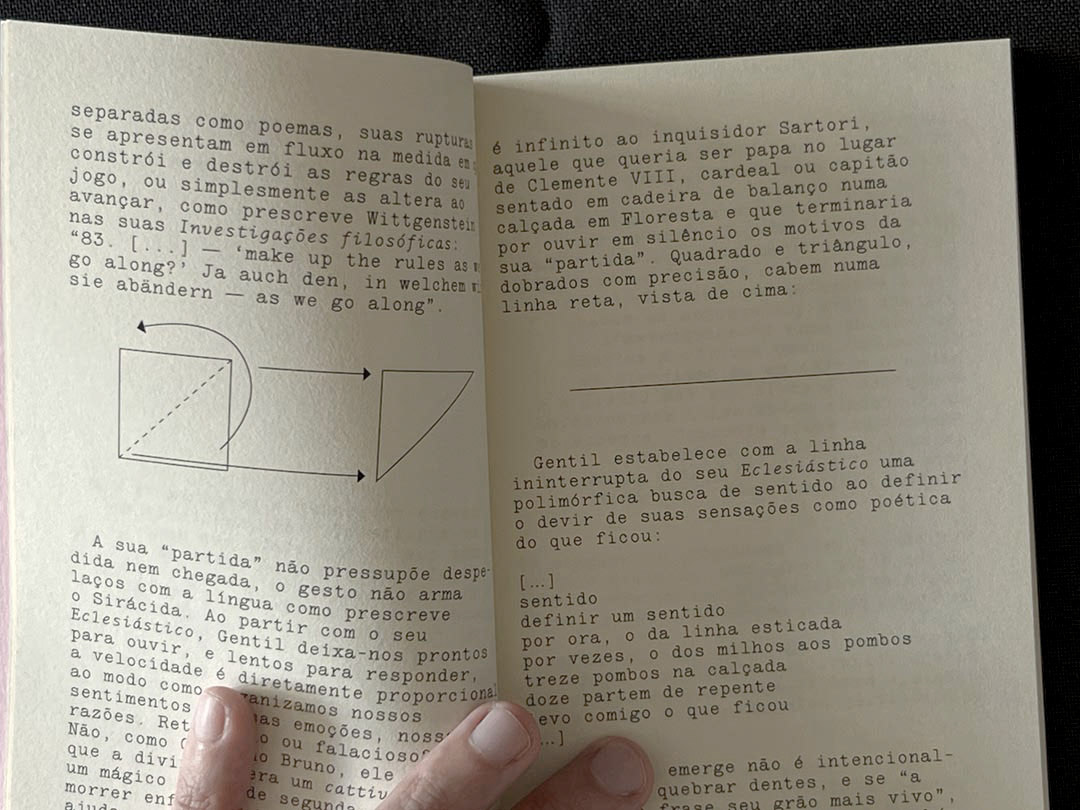 separadas como poemas, suas rupturas
se apresentam em fluxo na medida em
constrói e destrói as regras do seu
jogo, ou simplesmente as altera ao
avançar, como prescreve Wittgenstein
nas suas Investigações filosóficas:
“83. [...] — ‘make up the rules as
go along?’ Ja auch den, in welchem
sie abändern — as we go along”.
A sua “partida” não pressupõe despe-
dida nem chegada, o gesto não arma
laços com a língua como prescreve
o Sirácida. Ao partir com o seu
Eclesiástico, Gentil deixa-nos prontos
para ouvir, e lentos para responder,
a velocidade é diretamente proporcional
ao modo como nossos
sentimentos emoções,
razões. ou falacioso
Não, como Bruno, ele
que a
um mágico um
morrer de
é infinito ao inquisidor Sartori,
aquele que queria ser papa no lugar
de Clemente VIII, cardeal ou capitão
sentado em cadeira de balanço numa
calçada em Floresta e que terminaria
por ouvir em silêncio os motivos da
sua “partida”. Quadrado e triângulo,
dobrados com precisão, cabem numa
linha reta, vista de cima:
Gentil estabelece com a linha
ininterrupta do seu Eclesiástico uma
polimórfica busca de sentido ao definir
o devir de suas sensações como poética
do que ficou:
[...]
sentido
definir um sentido
por ora, o da linha esticada
por vezes, o dos milhos aos pombos
treze pombos na calçada
doze partem de repente
levo comigo o que ficou
[...]
emerge não é intencional-
quebrar dentes, e se “a
frase seu grão mais vivo”,